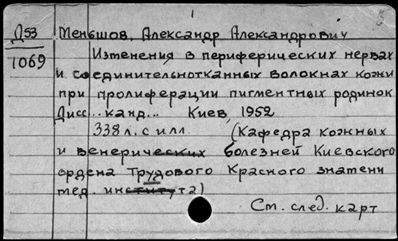 Д53 Меньшов, Александр Александрович
1069 Изменения в периферических нервах
и соединительнотканных волокнах кожи
при пролиферации пигментных родинок
Дисс... канд... Киев, 1952
338 л. с илл. (Кафедра кожных
и венерических болезней Киевского
ордена Трудового Красного знамени
мед. института)
См. след. карт